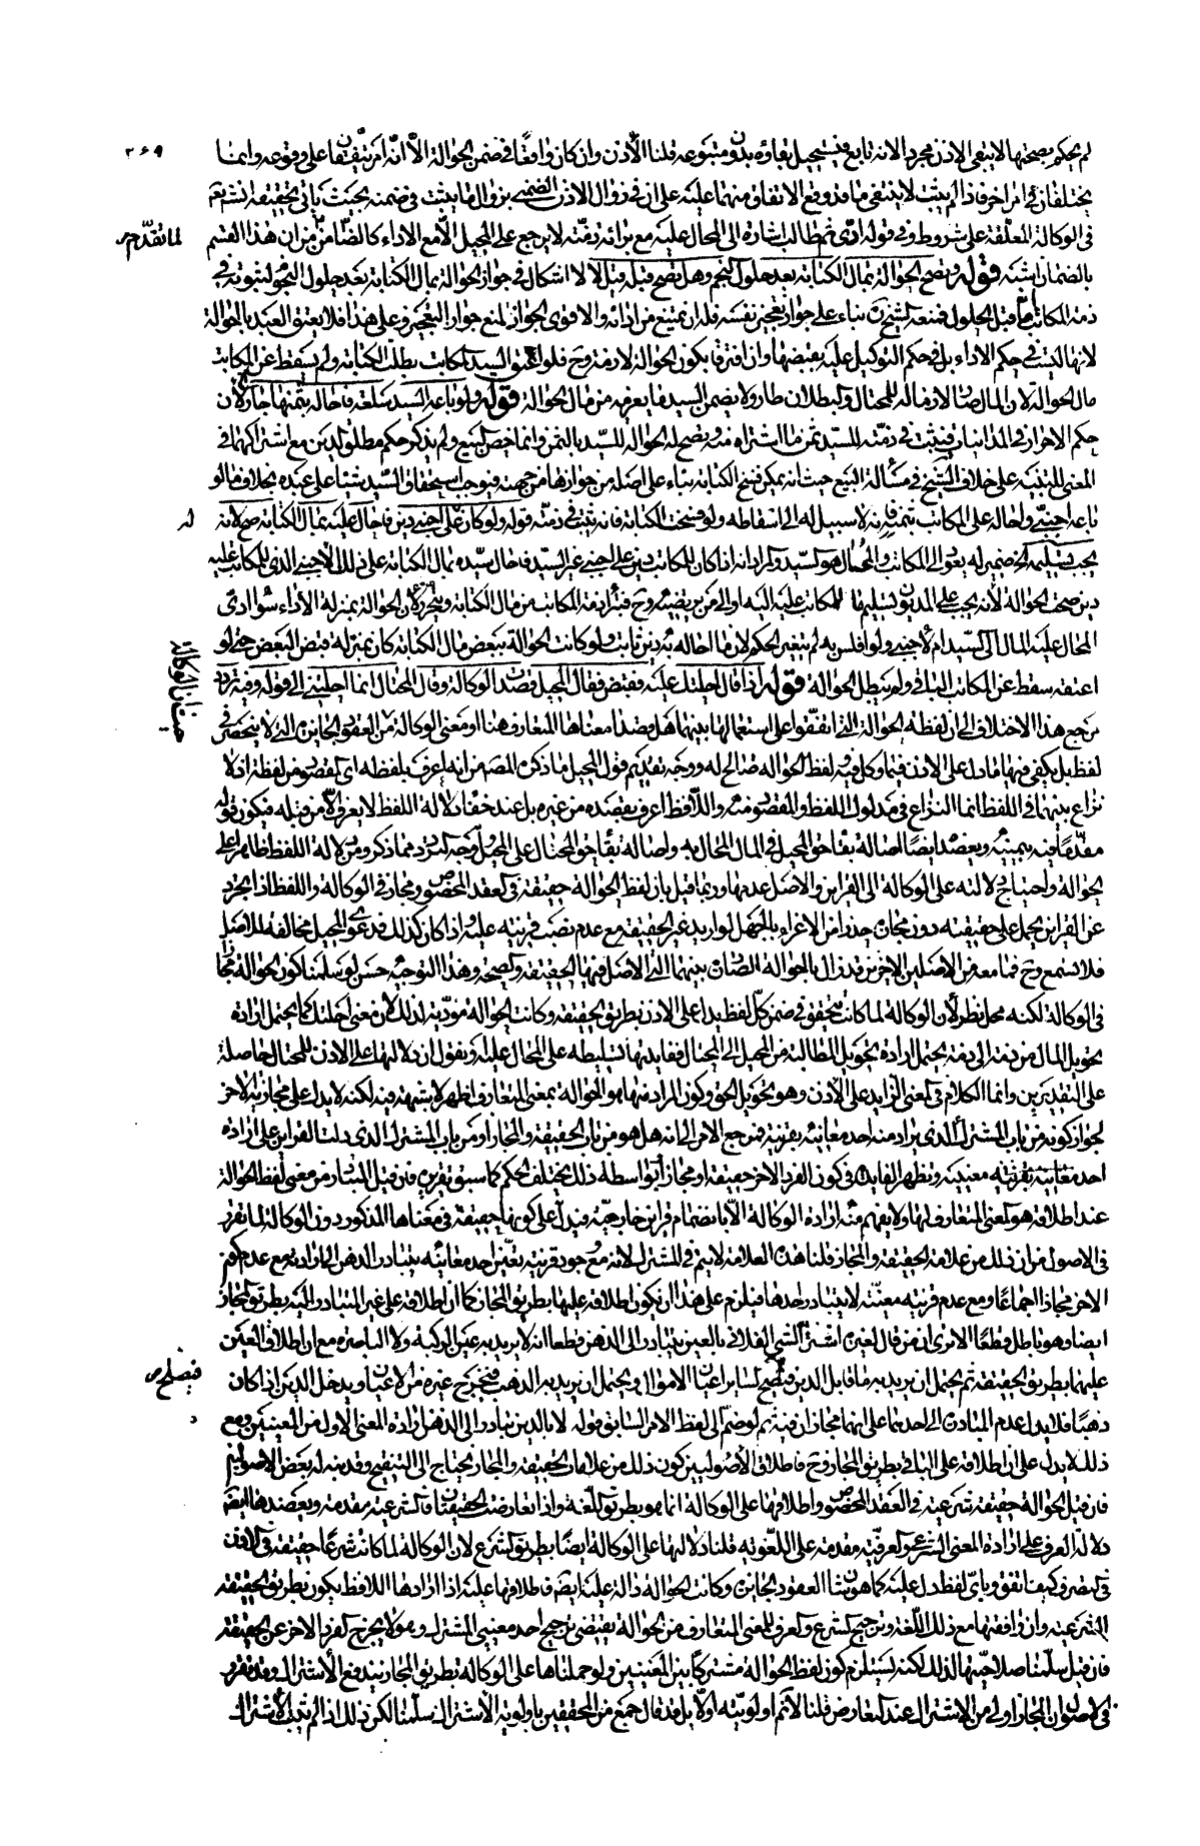 ٣٦٩
لم يحكم بصحتها لا يبقى الاذن مجردا لانه تابع فيستحيل بقاؤه بدون متبوعه قلنا الاذن وان كان واقعا في ضمن الحوالة الا انه امر يتفقان على وقوعه وانما
يختلفان في امر اخر فاذا لم يثبت لا ينتفي ما قد وقع الاتفاق منهما عليه على ان في زوال الاذن الضمني بزوال ما يثبت في ضمنه بحيث ياتي تحقيقه انشاء الله تعالى
في الوكالة المعلقة على شرط وفي قوله ادى ثم طالب اشارة الى ان المحال عليه مع برائة ذمته لا يرجع على المحيل الا مع الاداء كالضامن من ان هذا القسم
لما تقدم صح
بالضمان اشبه قوله وتصح الحوالة بمال الكتابة بعد حلول النجم وهل تصح قبله قيل لا لا اشكال في جواز الحوالة بمال الكتابة بعد حلول النجم لثبوته في
ذمة المكاتب واما قبل الحلول فمنعه الشيخ ره بناء على جواز تعجيز نفسه فله ان يمتنع من ادائه والاقوى الجواز لمنع جواز التعجيز وعلى هذا فلا يعتق العبد بالحوالة
لانها ليست في حكم الاداء بل في حكم التوكيل عليه بقبضها وان افترقا بكون الحوالة لازمة وح فلو اعتق السيد المكاتب بطلت الكتابة ولم يسقط عن المكاتب
مال الحوالة لان المال صار لازما له للمحتال والبطلان طار ولا يضمن السيد ما يغرمه من مال الحوالة قوله ولو باعه السيد سلعة فاحاله بثمنها جاز لان
حكمه حكم الاحرار في المداينات فيثبت في ذمته للسيد ثمن ما اشتراه منه وتصح له الحوالة للسيد بالثمن وانما خص البيع ولم يذكر حكم مطلق الدين مع اشتراكهما في
المعنى للتنبيه على خلاف الشيخ في مسألة البيع حيث انه يمكن فسخ الكتابة بناء على اصله من جوازها من جهته فيوجب استحقاق السيد شيئا على عبده بخلاف ما لو
باعه اجنبي واحاله على المكاتب بثمنه فانه لا سبيل له الى اسقاطه ولو فسخت الكتابة فانه يثبت في ذمته قوله ولو كان له على اجنبي دين فاحال عليه بمال الكتابة صح لانه
له
يجب تسليمه الخ ضمير له يعود الى المكاتب والمحتال هو السيد والمراد انه اذا كان للمكاتب دين على اجنبي غير السيد فاحال سيده بمال الكتابة على ذلك الاجنبي الذي للمكاتب عليه
دين صحت الحوالة لانه يجب على المديون تسليم ما للمكاتب عليه اليه او الى من يرتضيه وح فتبرأ ذمة المكاتب من مال الكتابة ويتحرر لان الحوالة بمنزلة الاداء سواء ادى
المحال عليه المال الى السيد ام لا حتى ولو افلس به لم يتغير الحكم لان ما احاله به دين ثابت ولو كانت الحوالة ببعض مال الكتابة كان بمنزلة قبض البعض حتى لو
اعتقه سقط عن المكاتب الباقي ولم تبطل الحوالة قوله اذا قال احلتك عليه فقبض فقال المحيل قصدت الوكالة وقال المحتال انما احلتني الى قوله وفيه تردد
مرجع هذا الاختلاف الى ان لفظة الحوالة التي اتفقوا على استعمالها بينهما هل قصدا معناها المتعارف هنا او معنى الوكالة من العقود الجايزة التي لا ينحصر في
حيث ان الوكالة
لفظ بل يكفي فيها ما دل على الاذن فيما وكل فيه ولفظ الحوالة صالح له ووجه تقديم قول المحيل ما ذكره المصنف من انه اعرف بلفظه اي المقصود من لفظه اذ لا
نزاع بينهما في اللفظ انما النزاع في مدلول اللفظ والمقصود منه واللافظ اعرف بقصده من غيره بل عند خفاء دلالة اللفظ لا يعرف الا من قبله فيكون قوله
مقدما فيه بيمينه ويعضده ايضا اصالة بقاء حق المحيل في المال المحال به واصالة بقاء حق المحتال على المحيل ووجه التردد مما ذكر ومن دلالة اللفظ ظاهرا على
الحوالة واحتياج دلالته على الوكالة الى القراين والاصل عدمها وربما قيل بان لفظ الحوالة حقيقة في العقد المخصوص ومجاز في الوكالة واللفظ اذا تجرد
عن القراين يحمل على حقيقته دون مجازه حذرا من الاغراء بالجهل لو اريد غير الحقيقة مع عدم نصب قرينة عليه واذا كان كذلك فدعوى المحيل مخالفة للاصل
فلا تسمع وح فما معه من الاصلين الاخرين قد زال بالحوالة الصادرة بينهما التي الاصل فيها الحقيقة والصحة وهذا التوجيه حسن لو سلمنا كون الحوالة مجازا
في الوكالة لكنه محل نظر لان الوكالة لما كانت تتحقق في ضمن كل لفظ يدل على الاذن بطريق الحقيقة وكانت الحوالة مؤدية لذلك لان معنى احلتك كما يحتمل ارادة
تحويل المال من ذمة الى ذمة يحتمل ارادة تحويل المطالبة من المحيل الى المحتال فغايتها تسليطه على المحال عليه ونقول ان دلالتها على الاذن للمحتال حاصلة
على التقديرين وانما الكلام في المعنى الزايد على الاذن وهو تحويل الحق وكون المراد منها هو الحوالة بمعنى المتعارف اظهر لا شبهة فيه لكنه لا يدل على مجازية الاخر
لجواز كونه من باب المشترك الذي يراد منه احد معانيه بقرينة فمرجع الامر الى انه هل هو من باب الحقيقة والمجاز او من باب المشترك الذي دلت القراين على ارادة
احد معانيه بقرينة معينة وتظهر الفايدة في كون الفرد الاخر حقيقة او مجازا بواسطة ذلك يختلف الحكم كما سبق تقريره فان قيل المتبادر من معنى لفظ الحوالة
عند اطلاقه هو المعنى المتعارف لها ولا يفهم منه ارادة الوكالة الا بانضمام قراين خارجية فيدل على كونها حقيقة في معناها المذكور دون الوكالة لما تقرر
في الاصول من ان ذلك من علامة الحقيقة والمجاز قلنا هذه العلامة لا يتم في المشترك لانه مع وجود قرينة تعين احد معانيه يتبادر الذهن الى ارادته مع عدم كون
الاخر مجازا اجماعا ومع عدم قرينة معينة لا يتبادر احدها فيلزم على هذا ان يكون اطلاقه عليها بطريق المجاز كما ان اطلاقه على غير المتبادر اليه بطريق المجاز
ايضا وهو باطل قطعا الا ترى ان من قال لغيره اشتر الشيء الفلاني بالعين يتبادر الى الذهن قطعا انه لا يريد به عين الركبة ولا الباصرة مع ان اطلاق العين
عليهما بطريق الحقيقة ثم يحتمل ان يريد به ما قابل الدين فيصلح لساير اعيان الاموال ويحتمل ان يريد به الذهب فيخرج غيره من الاعيان ويدخل الدين اذا كان
فيصلح صح
ذهبا فليدل عدم المتبادر الى احدهما على انهما مجازان فيه ثم لو ضم الى لفظ الامر السابق قوله لا بالدين تبادر الى الذهن ارادة المعنى الاول من المعنيين ومع
ذلك لا يدل على ان اطلاقه على الباقي بطريق المجاز وح فاطلاق الاصوليين كون ذلك من علامات الحقيقة والمجاز يحتاج الى التنقيح وقد تنبه له بعض الاصوليين
فان قيل الحوالة حقيقة شرعية في العقد المخصوص واطلاقها على الوكالة انما هو بطريق اللغة واذا تعارضت الحقيقتان فالشرعية مقدمة ويعضدها ايضا
دلالة العرف على ارادة المعنى الشرعي والعرفية مقدمة على اللغوية قلنا دلالتها على الوكالة ايضا بطريق الشرع لان الوكالة لما كانت شرعا حقيقة في الاذن
في التصرف كيف اتفق وباي لفظ دل عليه كما هو شان العقود الجايزة وكانت الحوالة دالة عليه ايضا فاطلاقها عليه اذا ارادها اللافظ يكون بطريق الحقيقة
الشرعية وان وافقتها مع ذلك اللغة وترجيح الشرع والعرف للمعنى المتعارف من الحوالة يقتضي ترجيح احد معنيي المشترك وهو لا يخرج الفرد الاخر عن الحقيقة
فان قيل سلمنا صلاحيتها لذلك لكنه يستلزم كون لفظ الحوالة مشتركا بين المعنيين ولو حملناها على الوكالة بطريق المجاز يندفع الاشتراك وقد تقرر
في الاصول ان المجاز اولى من الاشتراك عند التعارض قلنا لا نم اولويته اولا بل قد قال جمع من المحققين باولوية الاشتراك سلمنا لكن ذلك اذا لم يثبت الاشتراك